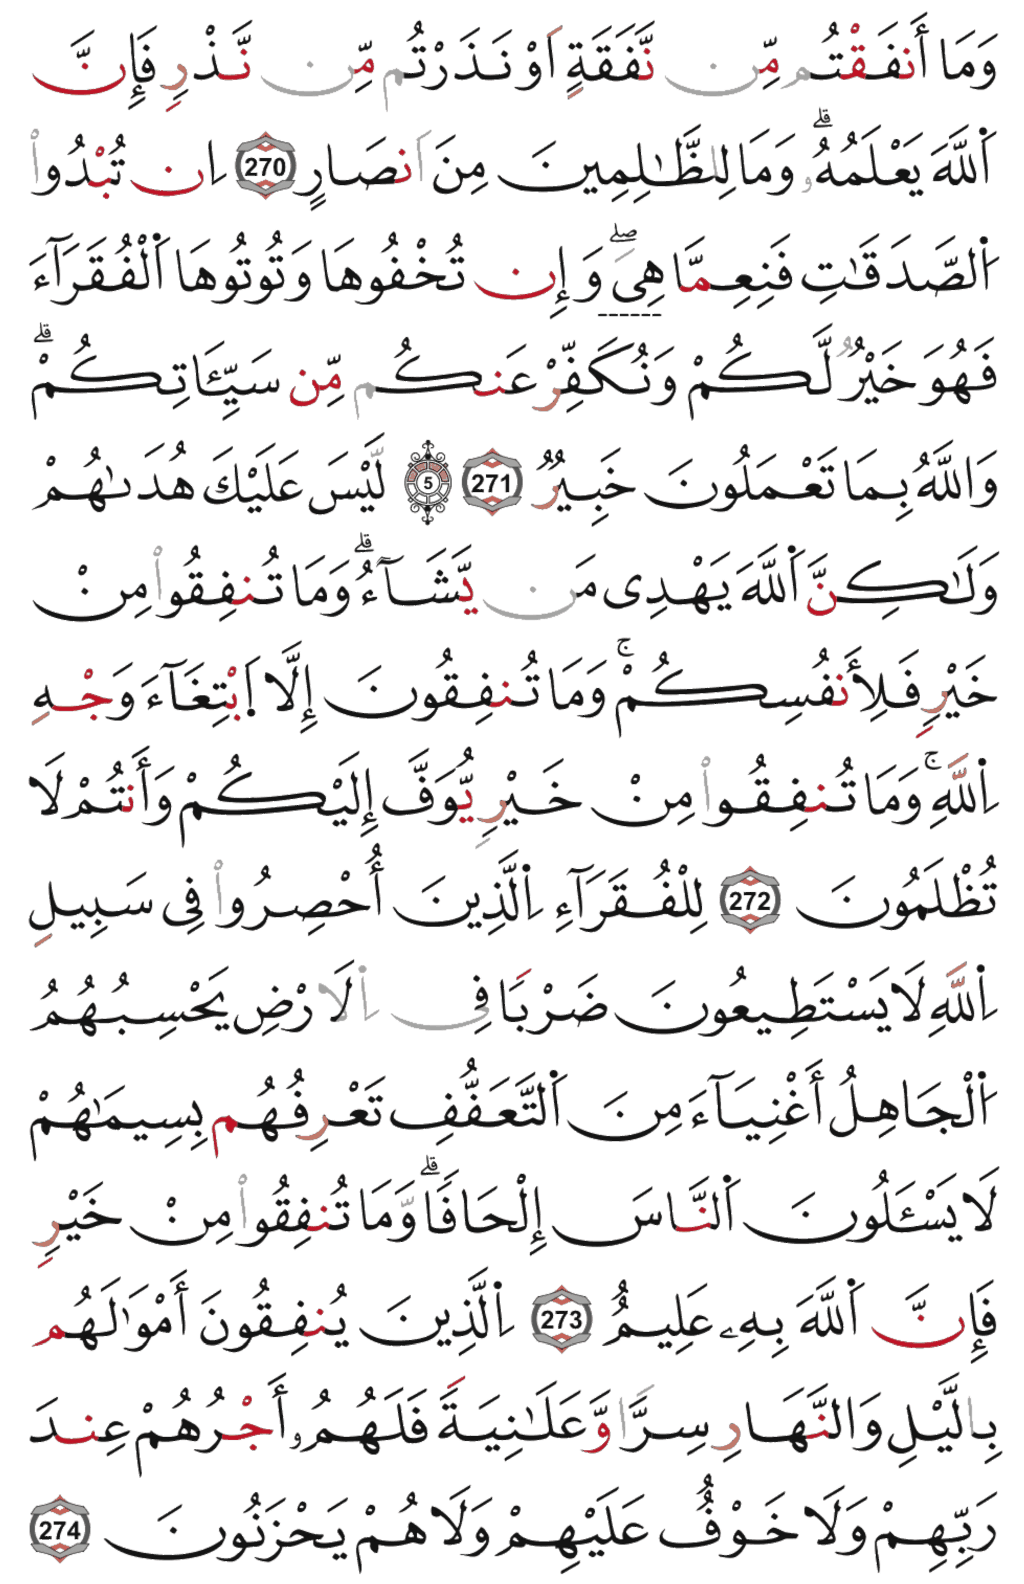 وَمَا أَنفَقْتُم مِّن نَّفَقَةٍ اَوْ نَذَرْتُم مِّن نَّذْرٍ فَإِنَّ
اَ۬للَّهَ يَعْلَمُهُۥۗ وَمَا لِلظَّٰلِمِينَ مِنَ اَنصَارٍ 270 اِن تُبْدُواْ
اُ۬لصَّدَقَٰتِ فَنِعِمَّا هِيَۖ وَإِن تُخْفُوهَا وَتُوتُوهَا اَ۬لْفُقَرَآءَ
فَهُوَ خَيْرٌ لَّكُمْ وَنُكَفِّرْ عَنكُم مِّن سَيِّـَٔاتِكُمْۗ
وَاللَّهُ بِمَا تَعْمَلُونَ خَبِيرٌ 271 5 لَّيْسَ عَلَيْكَ هُدَىٰهُمْ
وَلَٰكِنَّ اَ۬للَّهَ يَهْدِى مَن يَّشَآءُۗ وَمَا تُنفِقُواْ مِنْ
خَيْرٍ فَلِأَنفُسِكُمْۚ وَمَا تُنفِقُونَ إِلَّا اَ۪بْتِغَآءَ وَجْهِ
اِ۬للَّهِۚ وَمَا تُنفِقُواْ مِنْ خَيْرٍ يُّوَفَّ إِلَيْكُمْ وَأَنتُمْ لَا
تُظْلَمُونَ 272 لِلْفُقَرَآءِ اِ۬لَّذِينَ أُحْصِرُواْ فِى سَبِيلِ
اِ۬للَّهِ لَا يَسْتَطِيعُونَ ضَرْبًا فِى اِ۬لَارْضِ يَحْسِبُهُمُ
اُ۬لْجَاهِلُ أَغْنِيَآءَ مِنَ اَ۬لتَّعَفُّفِ تَعْرِفُهُم بِسِيمَٰهُمْ
لَا يَسْـَٔلُونَ اَ۬لنَّاسَ إِلْحَافًاۗ وَّمَا تُنفِقُواْ مِنْ خَيْرٍ
فَإِنَّ اَ۬للَّهَ بِهِۦ عَلِيمٌ 273 اِ۬لَّذِينَ يُنفِقُونَ أَمْوَٰلَهُم
بِالَّيْلِ وَالنَّهَارِ سِرًّا وَّعَلَٰنِيَةً فَلَهُمُۥ أَجْرُهُمْ عِندَ
رَبِّهِمْ وَلَا خَوْفٌ عَلَيْهِمْ وَلَا هُمْ يَحْزَنُونَ 274